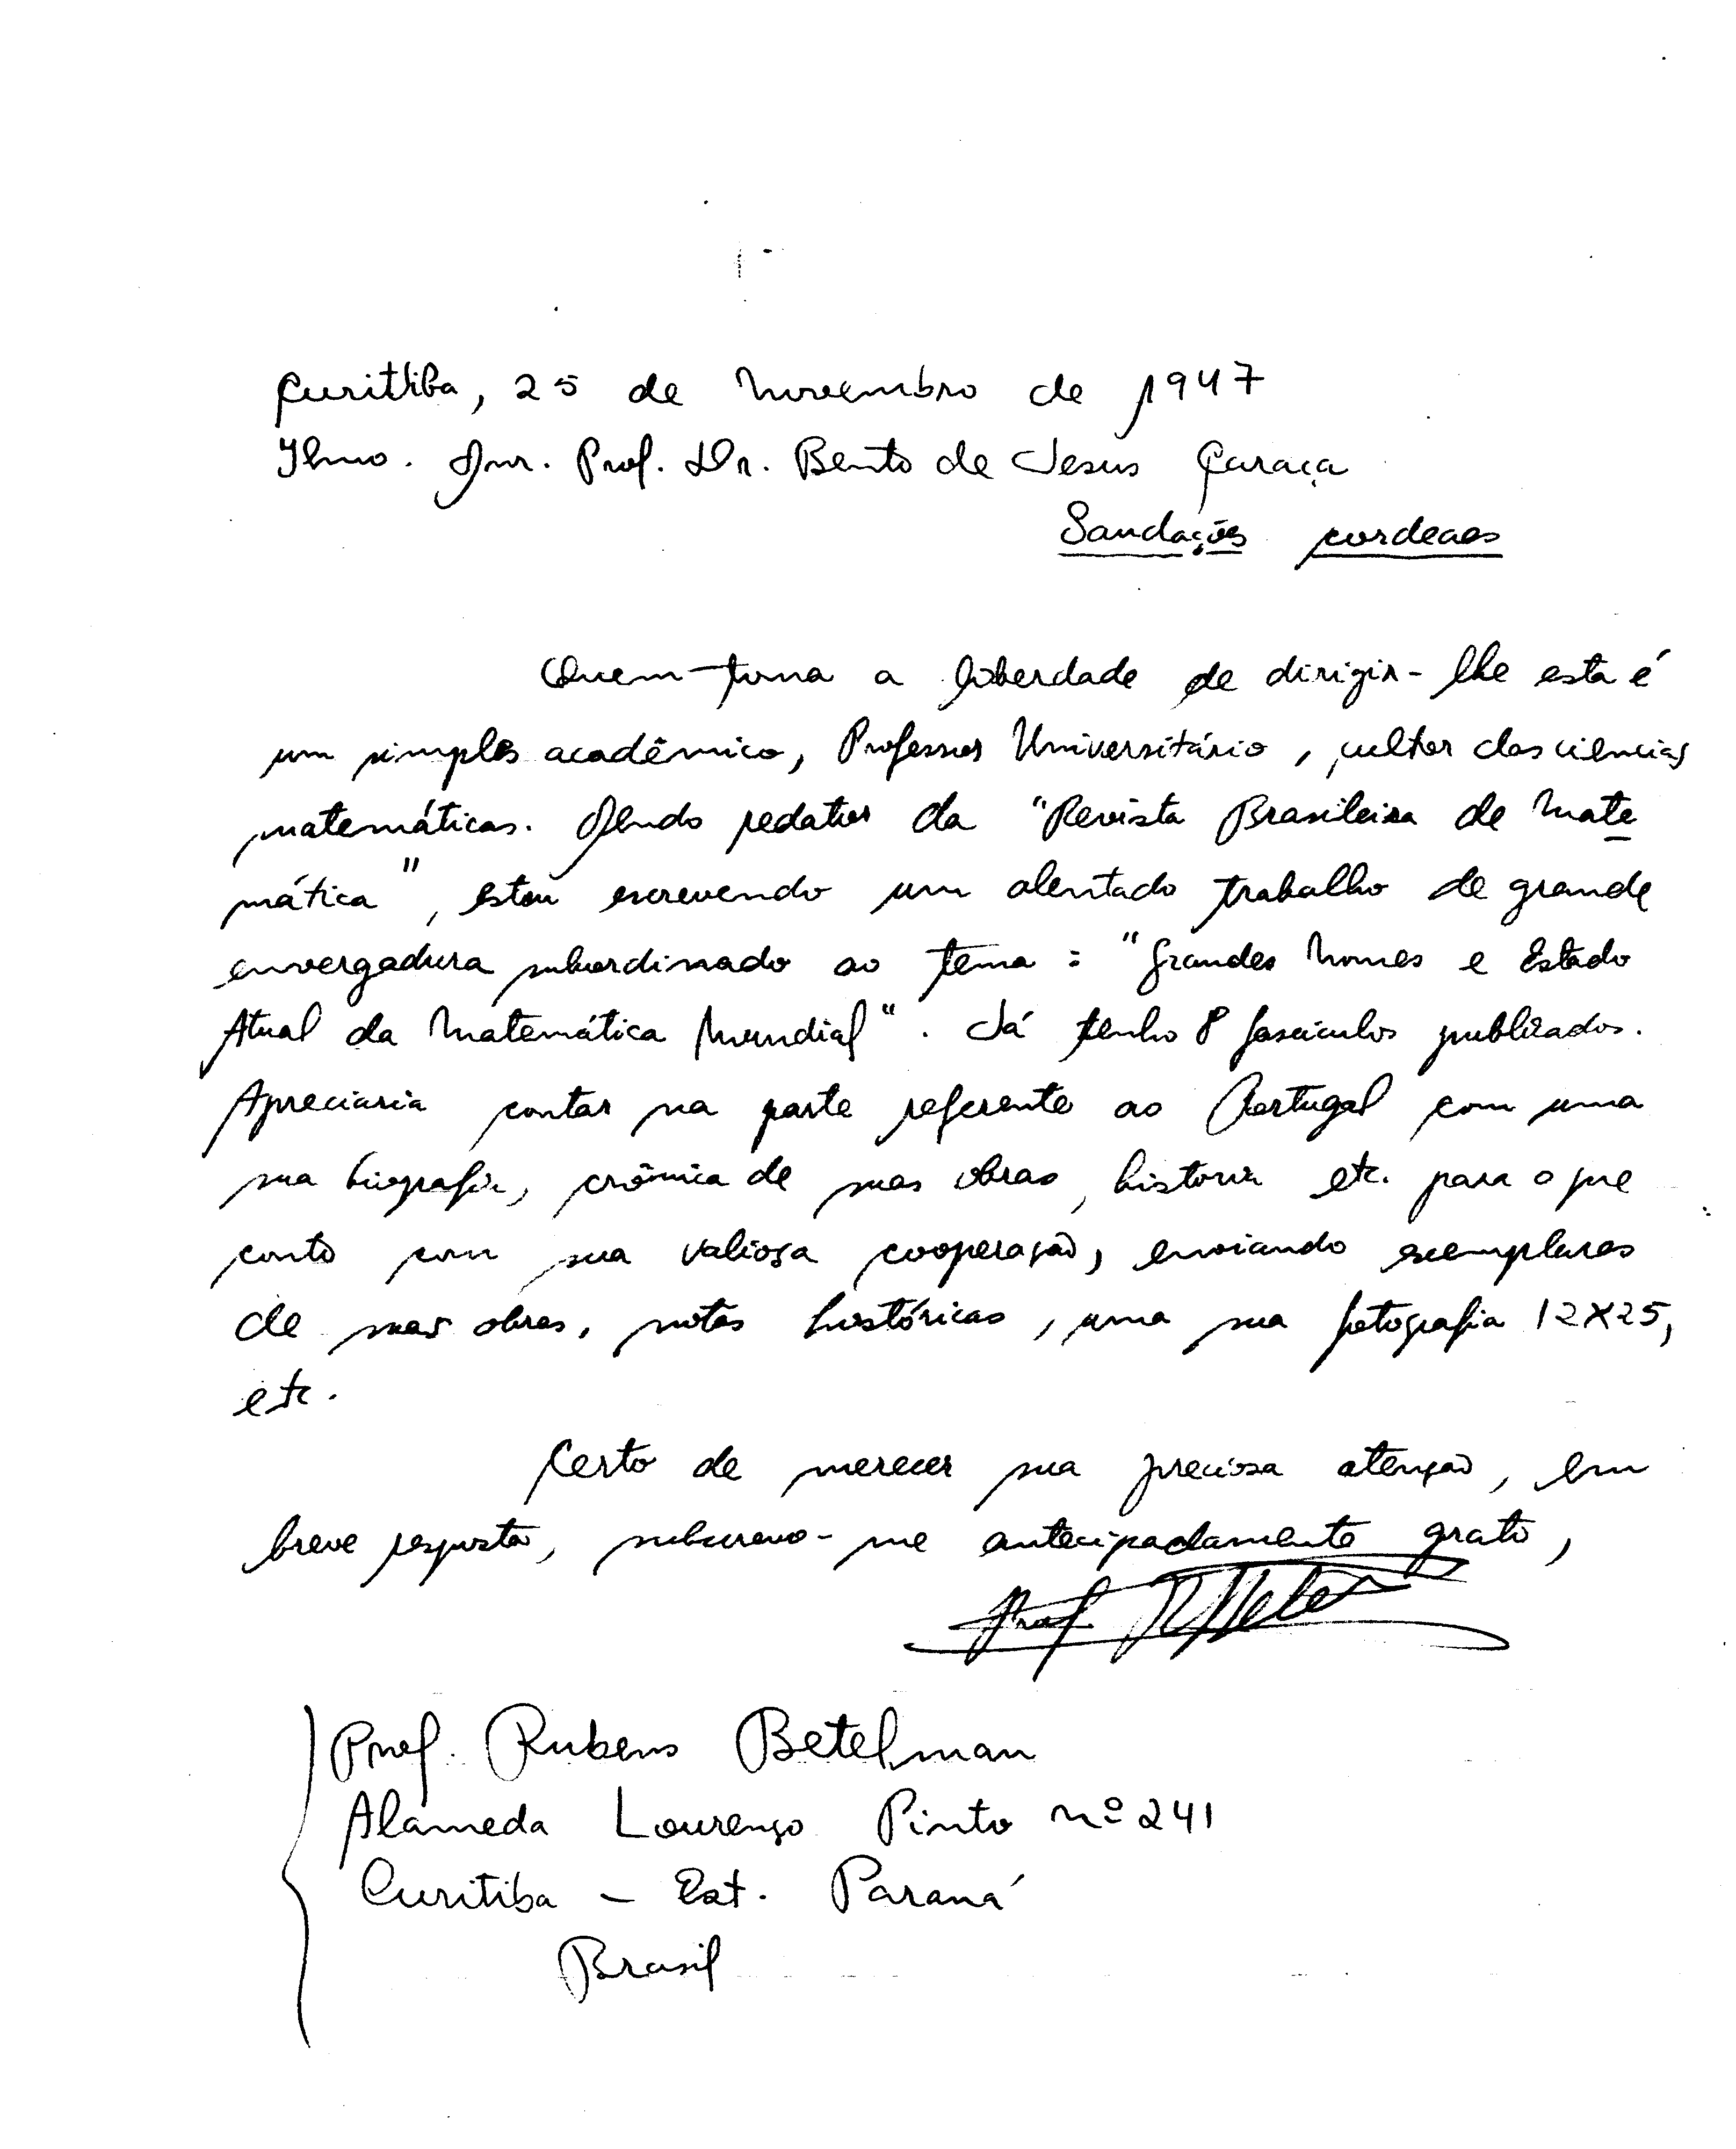 Curitiba, 25 de Novembro de 1947
Ilmo. Snr. Prof. Dr. Bento de Jesus Caraça
Saudações cordeaes
Quem toma a liberdade de dirigir-lhe esta é
um simples acadêmico, Professor Universitário, cultor das ciencias
matemáticas. Sendo redator da "Revista Brasileira de Mate
mática", estou escrevendo um alentado trabalho de grande
envergadura subordinado ao tema: "Grandes Nomes e Estado
Atual da Matemática Mundial". Já tenho 8 fasciculos publicados.
Apreciaria contar na parte referente ao Portugal com uma
sua biografia, crônica de suas obras, historia etc. para o que
conto com sua valiosa cooperação, enviando exemplares
de suas obras, notas históricas, uma sua fotografia 12X25,
etc.
Certo de merecer sua preciosa atenção, em
breve resposta, subscrevo-me antecipadamente grato,
Prof.
Prof. Rubens Betelman
Alameda Lourenço Pinto nº 241
Curitiba - Est. Paraná
Brasil